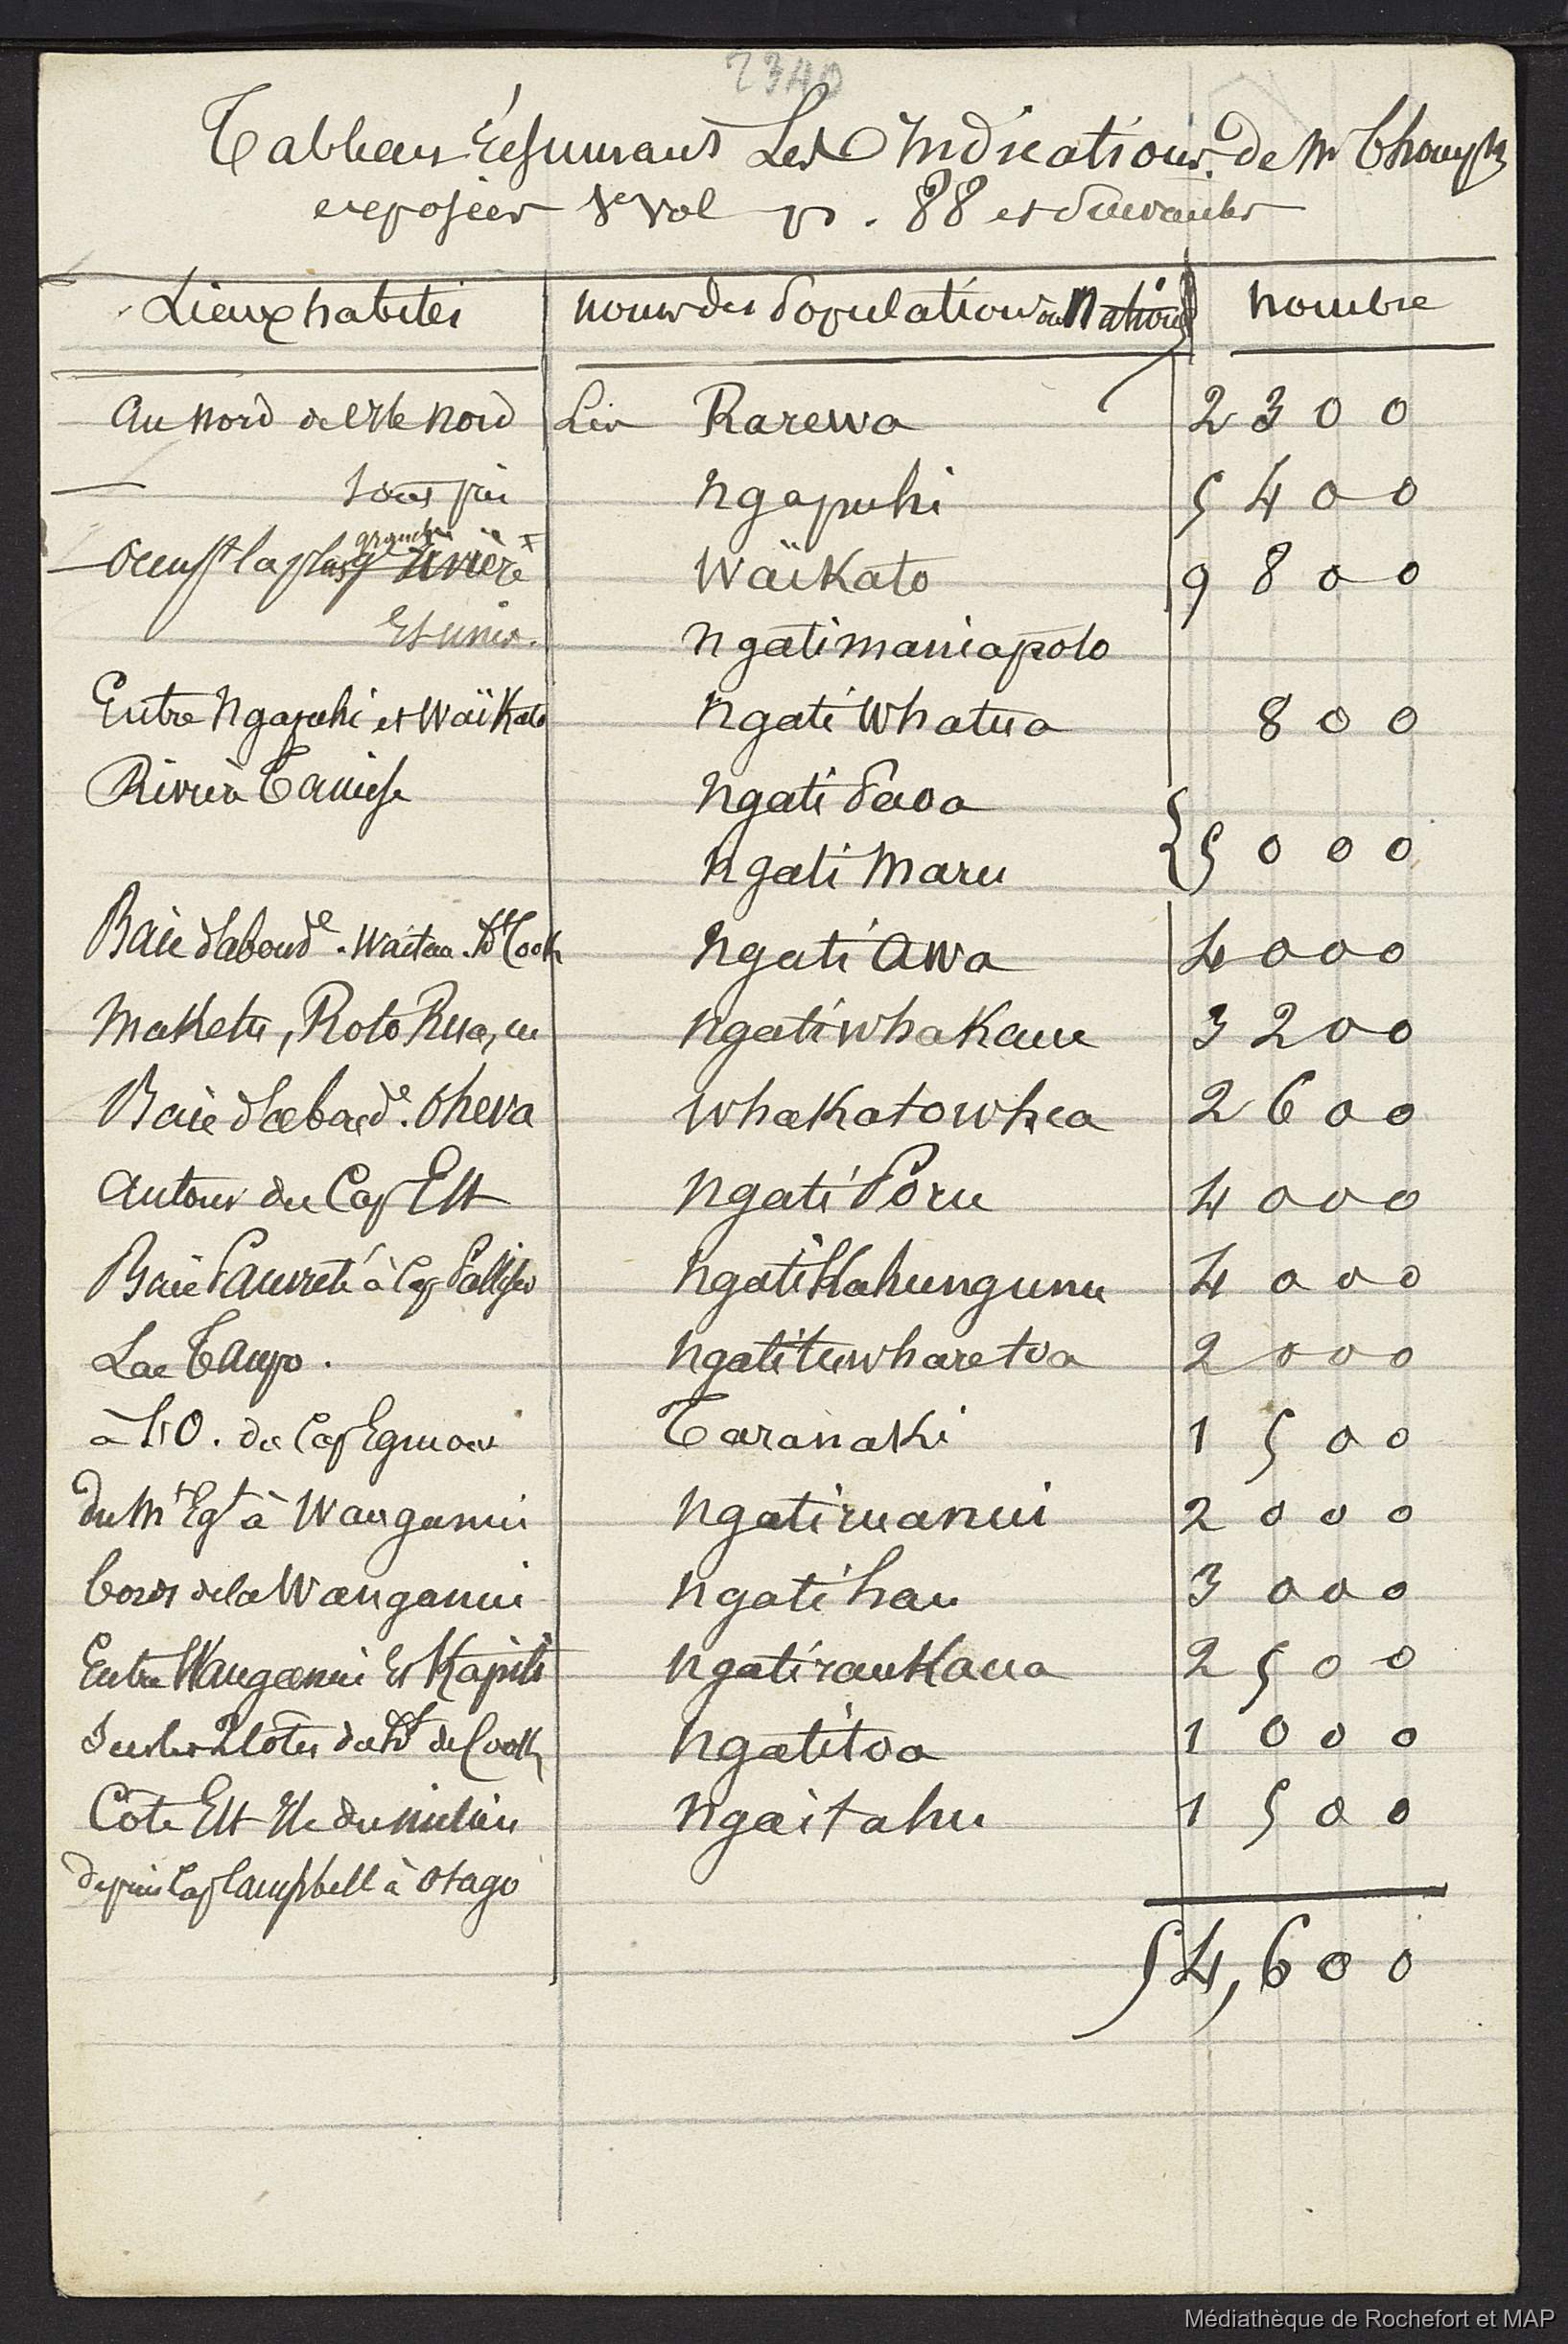 2340
Tableau résumant Les Indications de Mr Thomps
exposées 1er vol p. 88 et suivantes
Lieux habités noms des populations ou Nations nombre
Au nord de l'Ile nord Les Rarewa 2300
ngapuhi 5400
la plus grande rivière x Wäikato 9800
ngatimaniapoto
Entre Ngapuhi et Wäikato ngati Whatua 800
Rivière Tamise ngati Paoa
ngati Maru { 5000
Baie d'abond.e Waitara. Dt Cook ngati Awa 4000
Maketu, Roto Rua, ngatiwhakaue 3200
Baie d'abond.e Ohewa whakatowhea 2600
autour du Cap Est ngati Poru 4000
Baie Pauvreté à Cap Palliser ngatiKahungunu 4000
Lac Taupo. ngatituwharetoa 2000
à l'O. du Cap Egmont Taranaki 1500
du Mt Egt à Wanganui ngatiruanui 2000
bords de la Wanganui ngatihau 3000
Entre Wanganui et Kapiti ngatiraukaua 2500
Sur les Ilôtes du Dt de Cook ngatitoa 1000
Côte Est Ile du milieu ngaitahu 1500
depuis Cap Campbell à Otago
54,600
Médiathèque de Rochefort et MAP